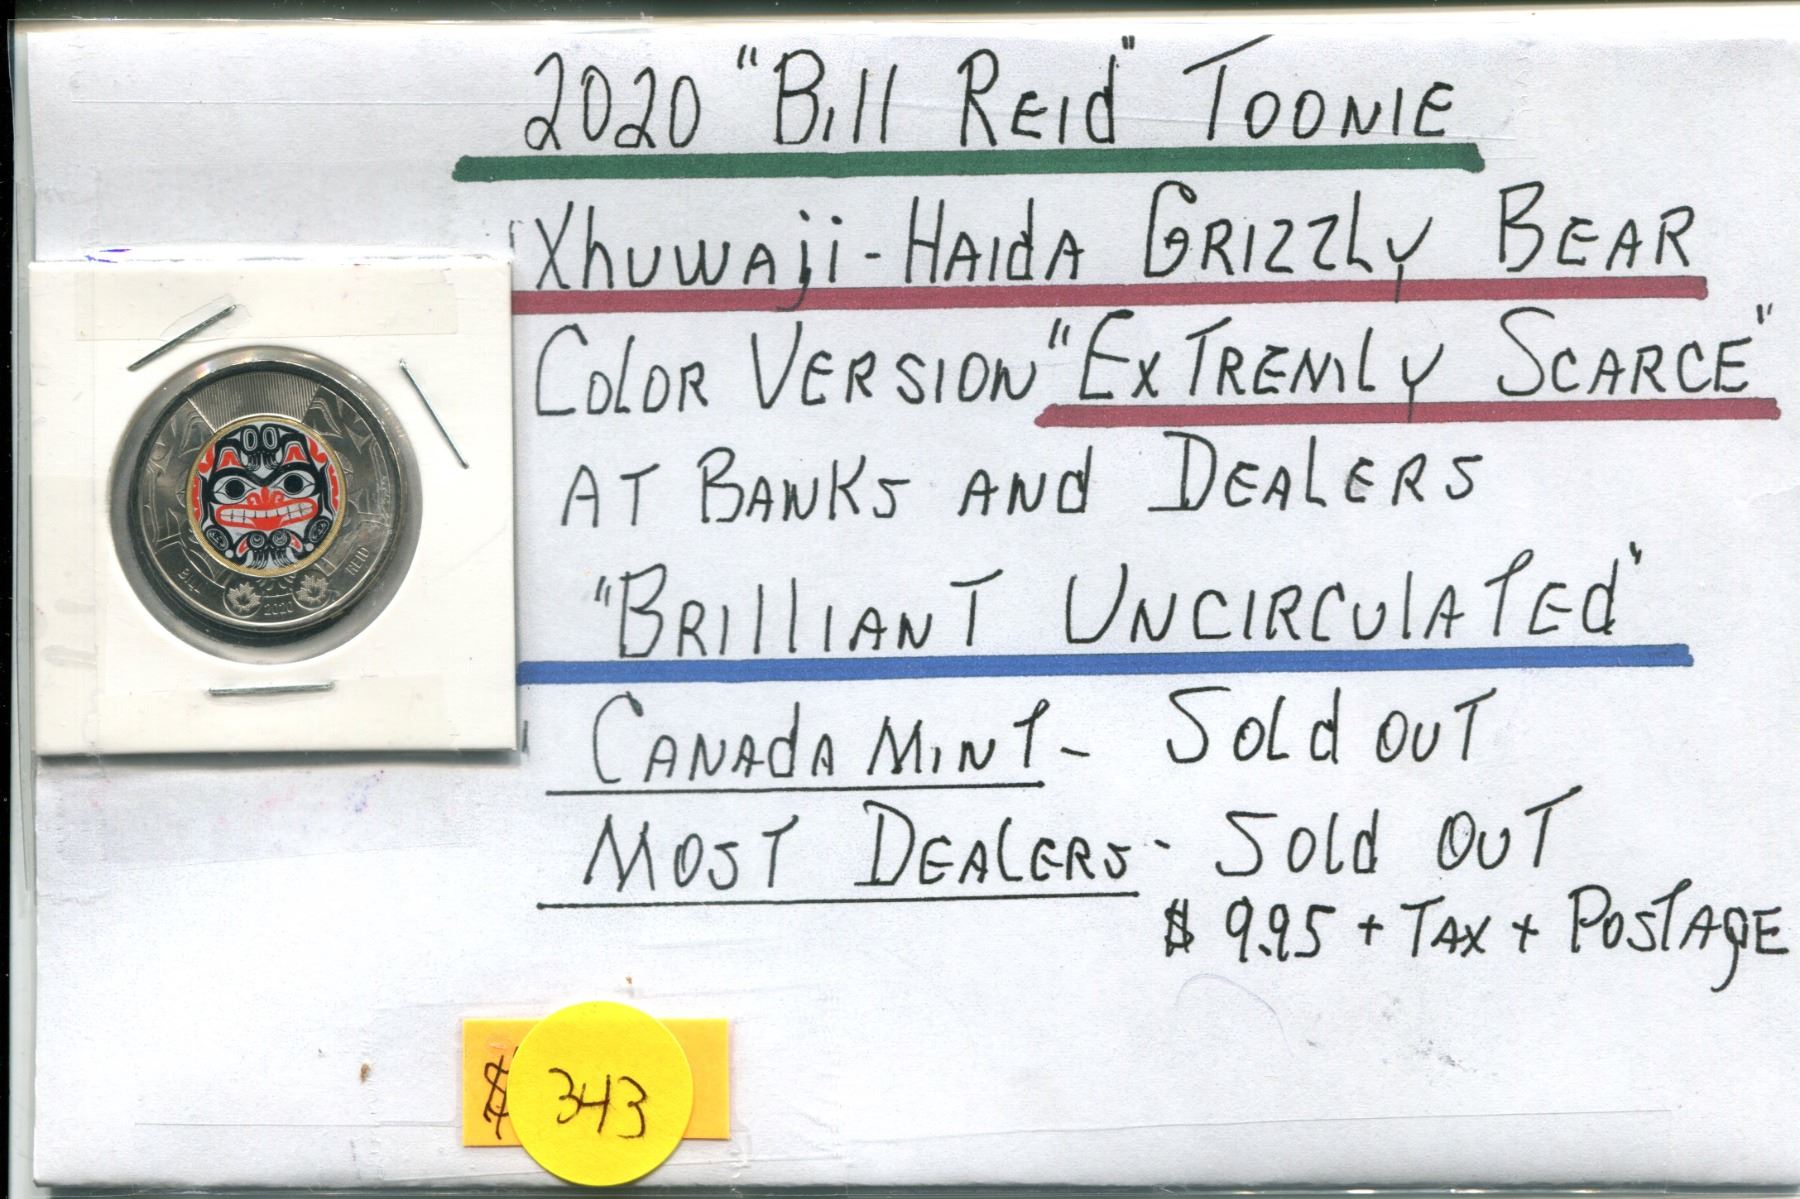 2020 "Bill Reid" Toonie
Xhuwaji - Haida Grizzly Bear
Color Version "Extremly Scarce"
at Banks and Dealers
"Brilliant Uncirculated"
Canada Mint - Sold out
Most Dealers - Sold out
$ 9.95 + Tax + Postage
BILL REID
2020
$ 343